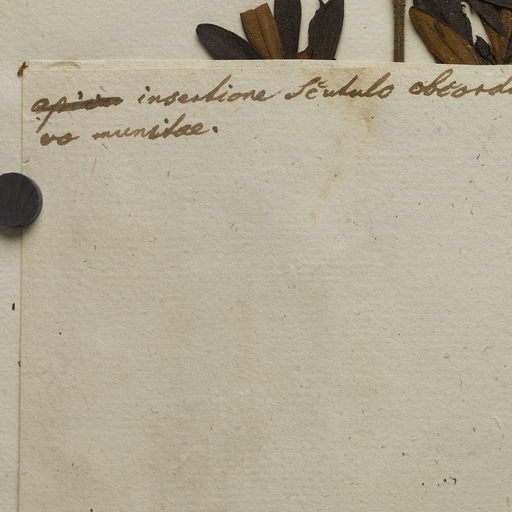 insertione Scutulo obcorda
vo munitae.